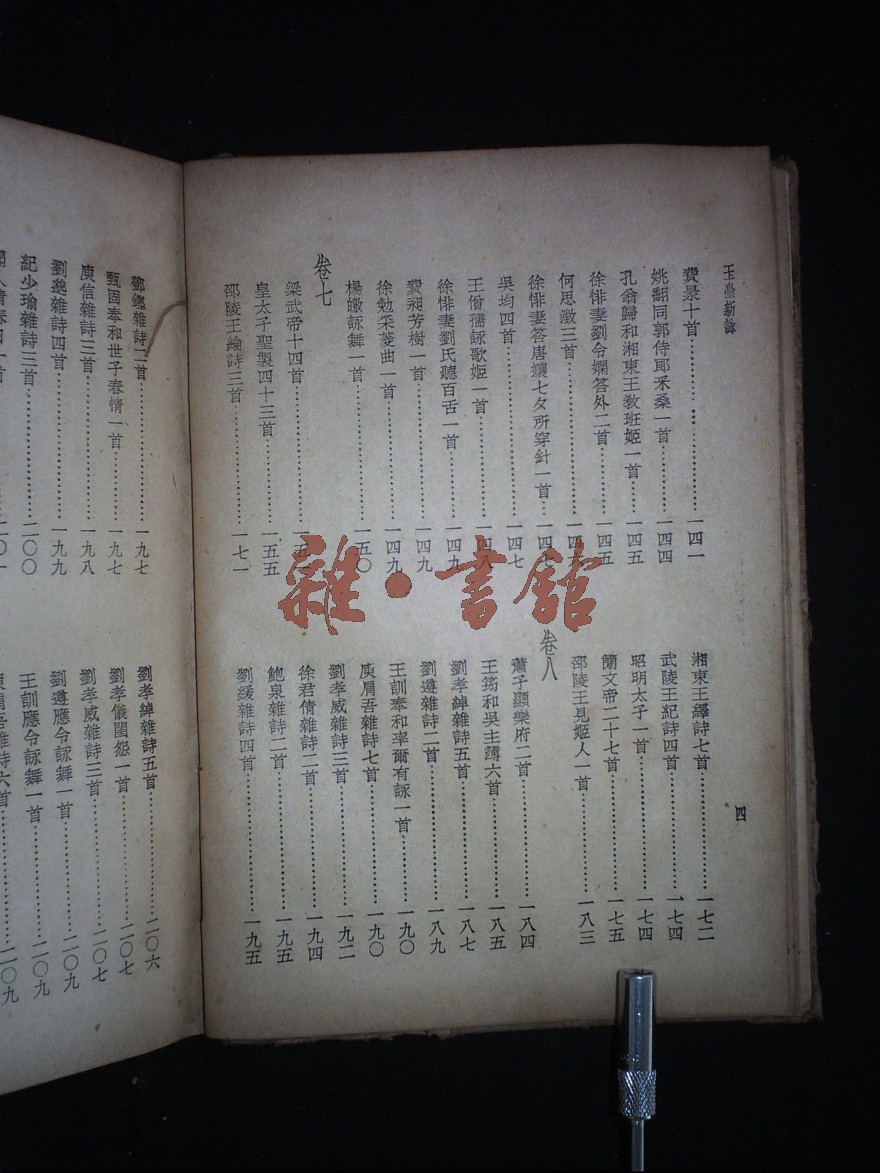 玉臺新詠
費昶十首……一四一
姚翻同郭侍郎采桑一首……一四四
孔翁歸和湘東王敎班姬一首……一四五
徐悱妻劉令嫺答外二首……一四五
何思澂三首……一四六
徐悱妻答唐孃七夕所穿針一首……一四七
吳均四首……一四七
王僧孺詠歌姬一首……一四八
徐悱妻劉氏聽百舌一首……一四九
費昶芳樹一首……一四九
徐勉采菱曲一首……一四九
楊皦詠舞一首……一五〇
卷七
梁武帝十四首……一五
皇太子聖製四十三首……一五五
邵陵王綸詩三首……一七一
湘東王繹詩七首……一七二
武陵王紀詩四首……一七四
昭明太子一首……一七四
簡文帝二十七首……一七五
邵陵王見姬人一首……一八三
卷八
蕭子顯樂府二首……一八四
王筠和吳主簿六首……一八五
劉孝綽雜詩五首……一八七
劉遵雜詩二首……一八九
王訓奉和率爾有詠一首……一九〇
庾肩吾雜詩七首……一九〇
劉孝威雜詩三首……一九二
徐君倩雜詩二首……一九四
鮑泉雜詩二首……一九五
劉緩雜詩四首……一九五
四
鄧鏗雜詩二首……一九七
甄固奉和世子春情一首……一九七
庾信雜詩三首……一九八
劉邈雜詩四首……一九九
紀少瑜雜詩三首……二〇〇
聞人蒨春日一首……二〇一
劉孝綽雜詩五首……二〇六
劉孝儀閨怨一首……二〇七
劉孝威雜詩三首……二〇七
劉遵應令詠舞一首……二〇九
王訓應令詠舞一首……二〇九
庾肩吾雜詩六首……二〇九
雜·書館